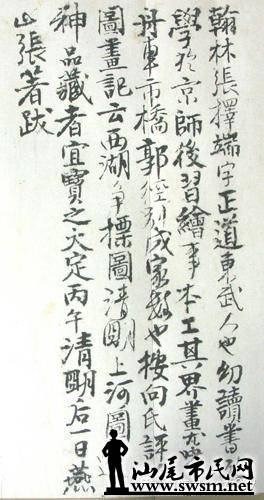 翰林張擇端字正道東武人也幼讀書
學於京師後習繪事本工其界畫尤嗜
舟車市橋郭徑別成家數也按向氏評
圖畫記云西湖爭標圖清明上河圖
神品藏者宜寶之大定丙午清明后一日燕
山張著跋
汕尾市民网
www.swsm.net